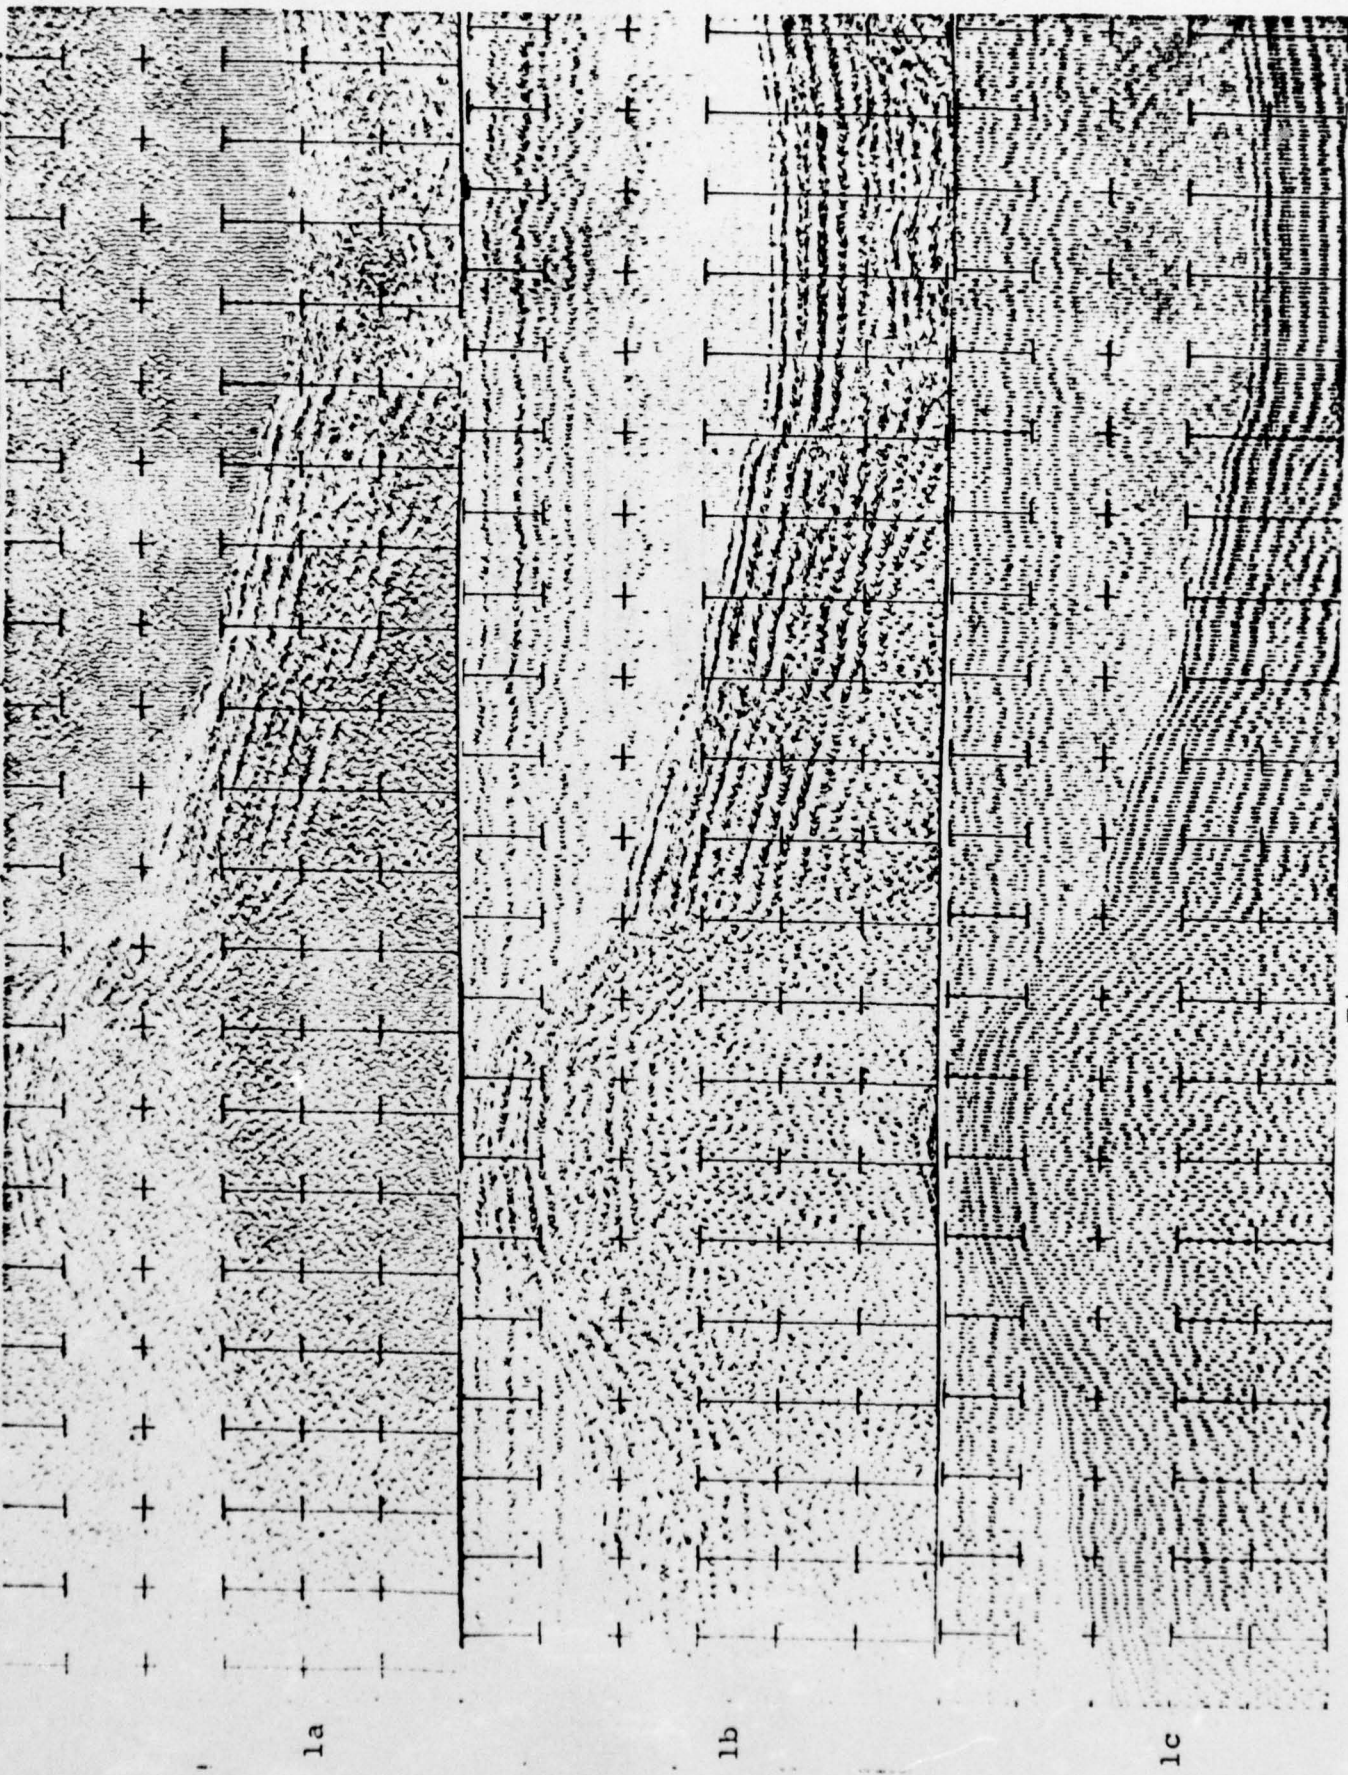 1a
1b
1c